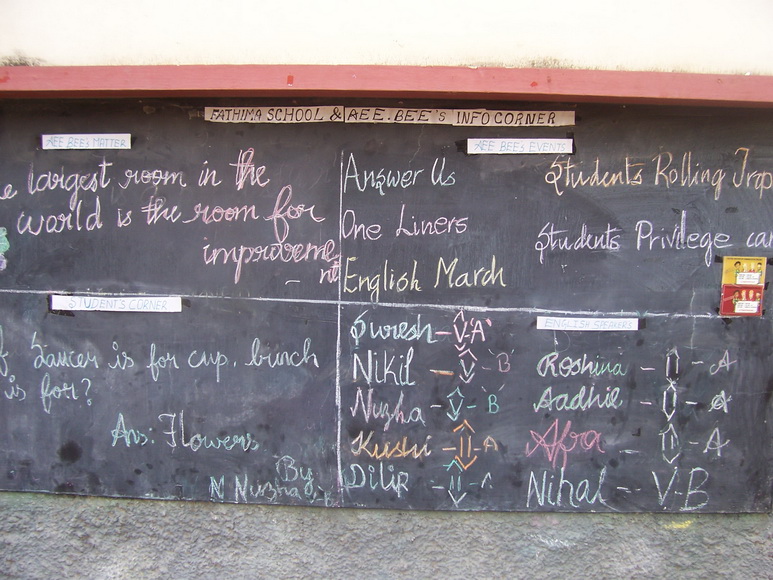 FATHIMA SCHOOL & AEE.BEE'S INFO CORNER
AEE BEE'S MATTER
e largest room in the
world is the room for
improveme
nt
AEE BEE'S EVENTS
Answer Us
One Liners
English March
Students Rolling Trop
Students Privilege car
STUDENT'S CORNER
f Saucer is for cup, bunch
is for?
Ans: Flowers
By
N Nuzha
ENGLISH SPEAKERS
Suresh - V-'A'
Nikil - V - 'B'
Nuzha - V - B
Kushi - II - A
Dilip - II - A
Roshina - II - A
Aadhil - II - A
Afra - II - A
Nihal - V-B